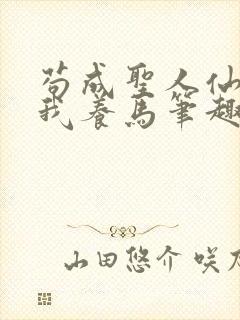 苟成聖人仙
我養馬筆趣
山田悠介 咲